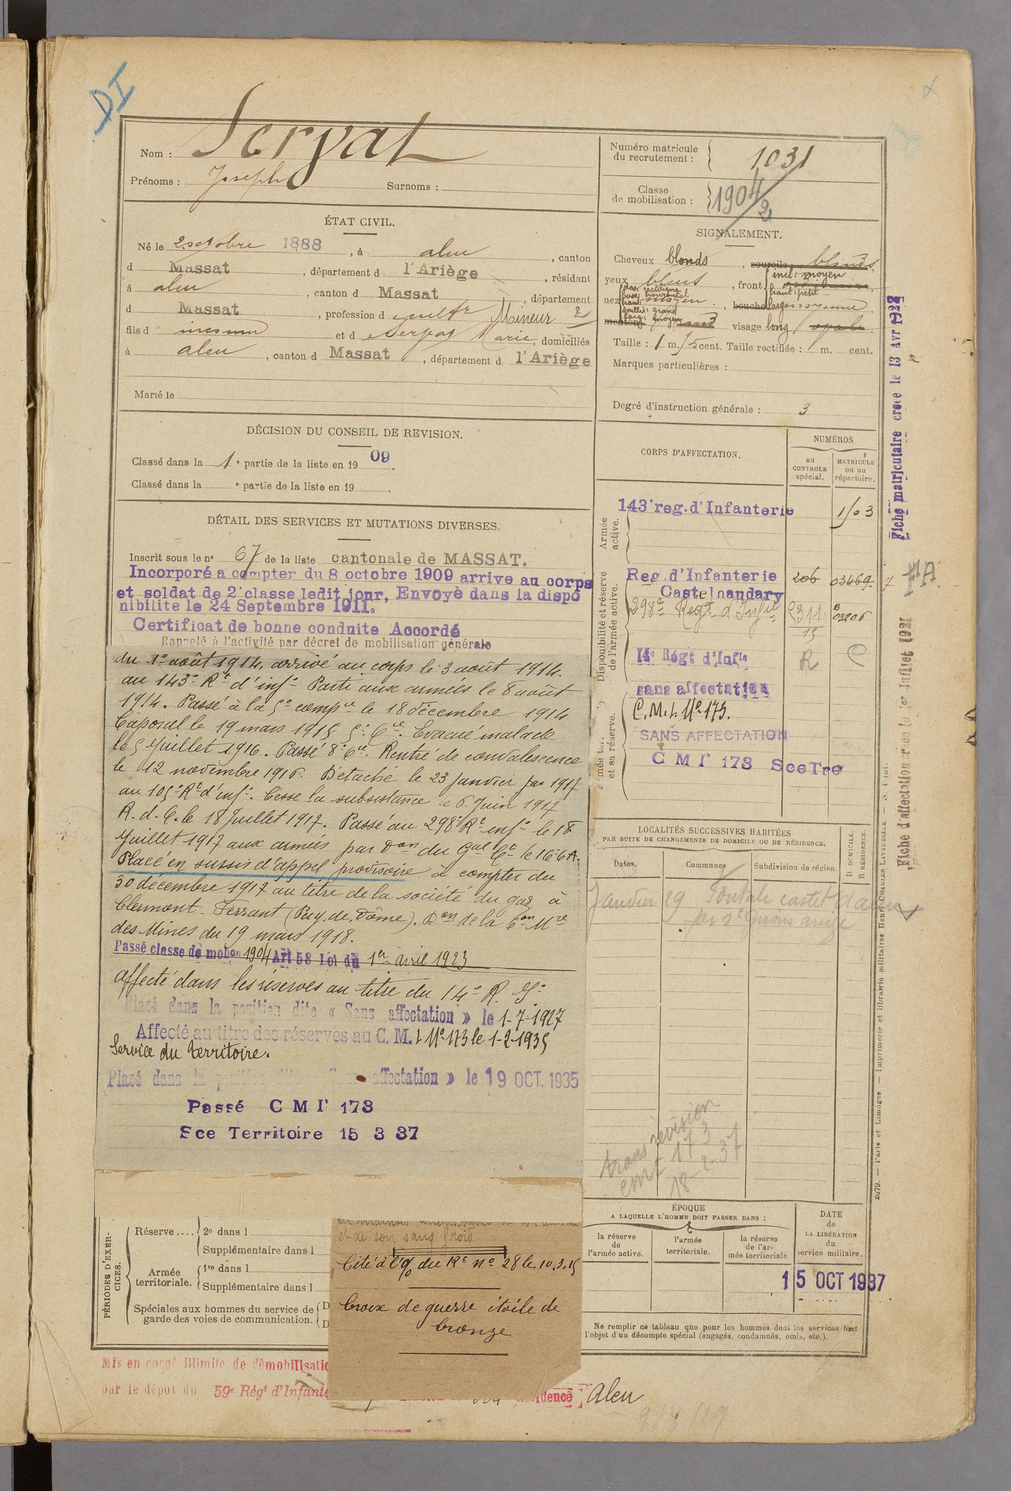 DI
Nom : Servat
Prénoms : Joseph Surnoms :
Numéro matricule du recrutement : 1031
Classe de mobilisation : 1904/2
ÉTAT CIVIL.
Né le 2 octobre 1888, à aleu, canton
d Massat, département d l'Ariège, résidant
à aleu, canton d Massat, département
d Massat, profession d cultr Mineur 2
fils d' et d Servat Marie, domiciliés
à aleu, canton d Massat, département d l'Ariège
Marié le
SIGNALEMENT.
Cheveux blonds sourcils blonds
yeux bleus, front incl: moyen
haut: petit
nez dos: rectiligne
base: horizontal
haut: moyen
saillie: grand
larg: moyen
bouche moyenne
menton rond visage long ovale
Taille : 1 m. cent. Taille rectifiée : 1 m. cent.
Marques particulières :
Degré d'instruction générale : 3
DÉCISION DU CONSEIL DE REVISION.
Classé dans la 1e partie de la liste en 1909.
Classé dans la e partie de la liste en 19
DÉTAIL DES SERVICES ET MUTATIONS DIVERSES.
Inscrit sous le no 67 de la liste cantonale de MASSAT.
Incorporé a compter du 8 octobre 1909 arrive au corps
et soldat de 2e classe ledit jour, Envoyé dans la dispo
nibilite le 24 Septembre 1911.
Certificat de bonne conduite Accordé
Rappelé à l'activité par décret de mobilisation générale
du 1er août 1914, arrivé au corps le 3 août 1914.
au 143e Rt d'infie Parti aux armées le 8 août
1914. Passé à la 5e compie le 18 décembre 1914
Caporal le 19 mars 1915 5e Cie. Evacué malade
le 5 Juillet 1916. Passé 8e Cie. Rentré de convalescence
le 12 novembre 1916. Détaché le 23 janvier 1917
au 105e Rt d'infie. Cesse la subsistance le 6 Juin 1917
R. d. C. le 18 Juillet 1917. Passé au 298e Rt infie le 18
Juillet 1917 aux armées par don du Gal Ct le 16e C.A.
Placé en sursis d'appel provisoire à compter du
30 décembre 1917 au titre de la société du gaz à
Clermont-Ferrant (Puy de Dôme). Don de la
des Mines du 19 mars 1918.
Passé classe de mobon 1904 Art 58 Loi du 1er avril 1923
affecté dans les réserves au titre du 14e R. I.
Placé dans la position dite « Sans affectation » le 1-7-1927
Affecté au titre des réserves au C. M. I. No 173 le 1-2-1935
Service du Territoire.
Placé dans la position dite Sans affectation » le 19 OCT. 1935
Passé C M I 173
Sce Territoire 15 3 37
CORPS D'AFFECTATION.
NUMÉROS
au CONTROLE spécial.
MATRICULE ou au répertoire.
Armée active.
143e reg. d'Infanterie 1503
Disponibilité et réserve de l'armée active.
Reg. d'Infanterie 206 03469
Castelnaudary
298e Regt d'Infie 2311 02206
15
14e Régt d'Infie R C
sans affectation
C. M. I. No 173.
SANS AFFECTATION
C M I 173 Sce Tre
LOCALITÉS SUCCESSIVES HABITÉES
PAR SUITE DE CHANGEMENTS DE DOMICILE OU DE RÉSIDENCE.
Dates. Communes Subdivision de région.
D DOMICILE.
R RÉSIDENCE.
Janvier 29
par St Girons
trans révision
cmi 173
18-2-37
PÉRIODES D'EXERCICES.
Réserve.... 2e dans l
Supplémentaire dans l
Armée territoriale. 1re dans l
Supplémentaire dans l
Spéciales aux hommes du service de garde des voies de communication.
et de son sang froid
Cité à l'O/ du Rt no 28 le 10.3.15
Croix de guerre étoile de bronze
ÉPOQUE
A LAQUELLE L'HOMME DOIT PASSER DANS :
la réserve de l'armée active.
l'armée territoriale.
la réserve de l'armée territoriale.
DATE DE LA LIBÉRATION du service militaire.
15 OCT 1937
Ne remplir ce tableau que pour les hommes dont les services font
l'objet d'un décompte spécial (engagés, condamnés, omis, etc.).
Mis en congé illimité de démobilisatio
par le dépôt du 59e Régt d'Infante
Résidence Aleu
Fiche matriculaire créée le 13 Avr 1922
Fiche d'affectation créée le Juillet 1921
2079. — Paris et Limoges. — Imprimerie et librairie militaires Henri CHARLES-LAVAUZELLE.